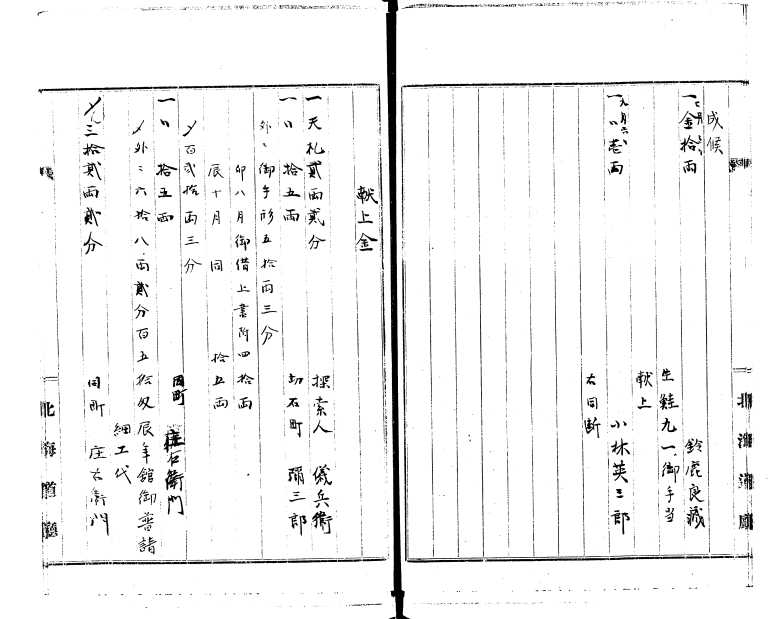 成候
一金拾両
鈴鹿良蔵
生鮭九一御手当
献上
小林英三郎
右同断
献上金
一天札貳両貳分
探索人 儀兵衛
拾五両
切石町 彌三郎
外ニ御手形五拾両三分
卯八月御借上書附四拾両
辰十月 同 拾五両
〆百弐拾両三分
拾五両
同町 庄右衛門
〆外ニ六拾八両貳分百五拾匁辰年館御普請
細工代
三拾貳両貳分
同町 庄右衛門
北海道廳